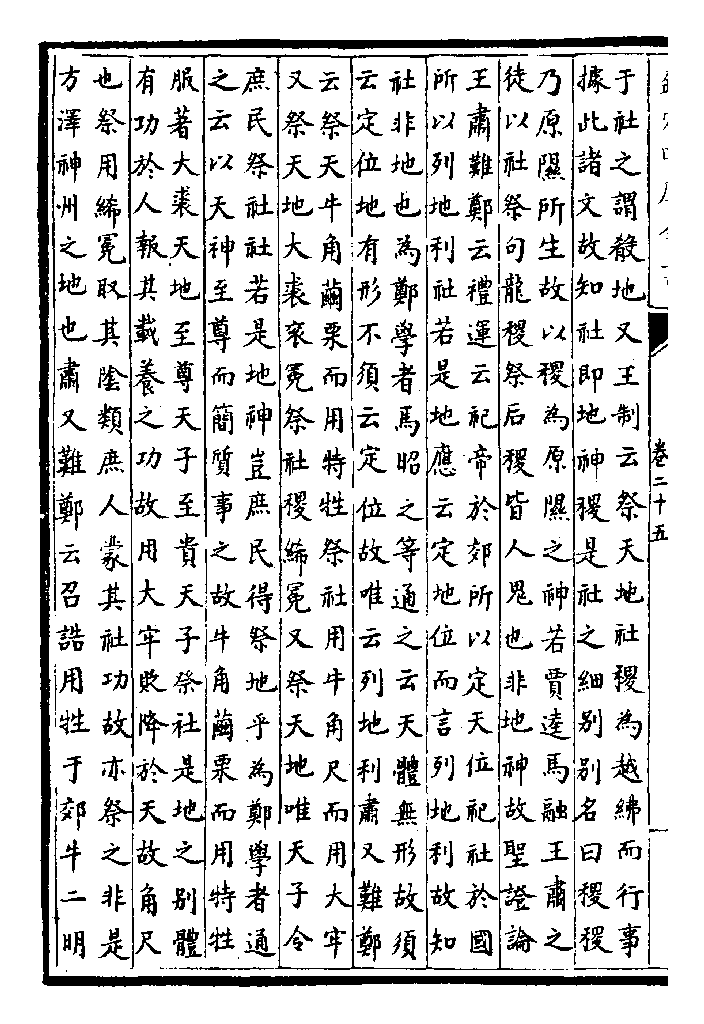 卷二十五
于社之謂殽地又王制云祭天地社稷為越紼而行事
據此諸文故知社即地神稷是社之細別別名曰稷稷
乃原隰所生故以稷為原隰之神若賈逵馬融王肅之
徒以社祭句龍稷祭后稷皆人鬼也非地神故聖證論
王肅難鄭云禮運云祀帝於郊所以定天位祀社於國
所以列地利社若是地應云定地位而言列地利故知
社非地也為鄭學者馬昭之等通之云天體無形故須
云定位地有形不須云定位故唯云列地利肅又難鄭
云祭天牛角繭栗而用特牲祭社用牛角尺而用大牢
又祭天地大裘衮冕祭社稷絺冕又祭天地唯天子令
庶民祭社社若是地神豈庶民得祭地乎為鄭學者通
之云以天神至尊而簡質事之故牛角繭栗而用特牲
服著大裘天地至尊天子至貴天子祭社是地之別體
有功於人報其載養之功故用大牢貶降於天故角尺
也祭用絺冕取其隂類庶人蒙其社功故亦祭之非是
方澤神州之地也肅又難鄭云召誥用牲于郊牛二明